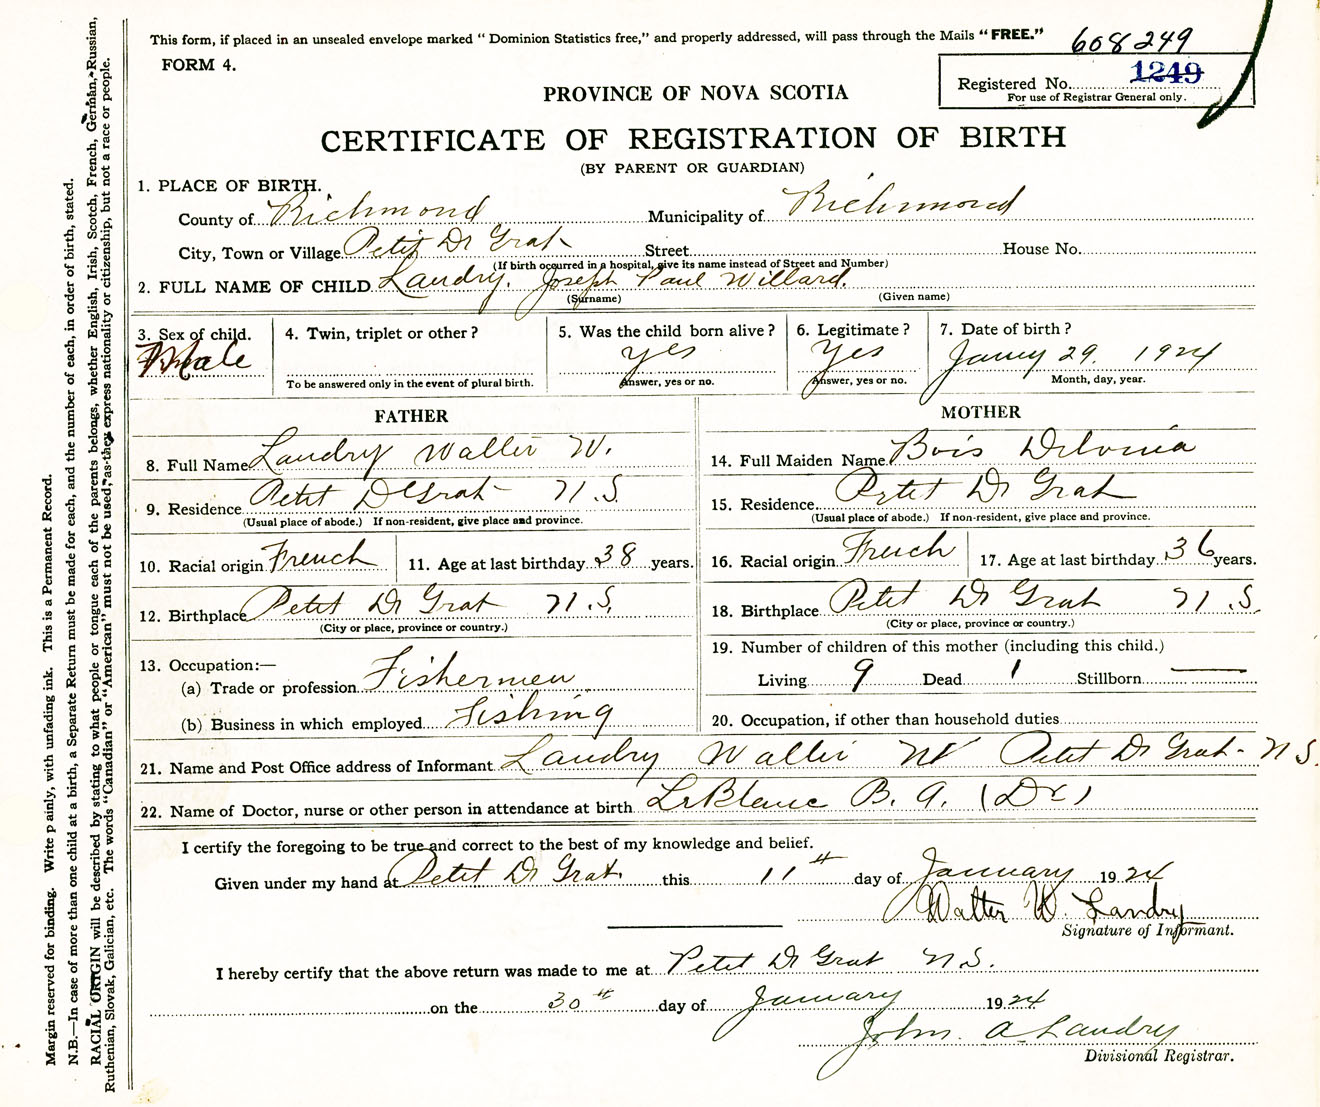 This form, if placed in an unsealed envelope marked " Dominion Statistics free," and properly addressed, will pass through the Mails "FREE."
608249
FORM 4.
Registered No. 1249
For use of Registrar General only.
PROVINCE OF NOVA SCOTIA
CERTIFICATE OF REGISTRATION OF BIRTH
(BY PARENT OR GUARDIAN)
1. PLACE OF BIRTH.
County of Richmond Municipality of Richmond
City, Town or Village Petit De Grat Street House No.
(If birth occurred in a hospital, give its name instead of Street and Number)
2. FULL NAME OF CHILD Landry, Joseph Paul Willard.
(Surname) (Given name)
3. Sex of child. 4. Twin, triplet or other ? 5. Was the child born alive ? 6. Legitimate ? 7. Date of birth ?
Male yes Yes Janry 29. 1924
To be answered only in the event of plural birth. Answer, yes or no. Answer, yes or no. Month, day, year.
FATHER
8. Full Name Landry Walter W.
9. Residence Petit De Grat N.S.
(Usual place of abode.) If non-resident, give place and province.
10. Racial origin French 11. Age at last birthday 38 years.
12. Birthplace Petit De Grat N.S.
(City or place, province or country.)
13. Occupation:—
(a) Trade or profession Fishermen
(b) Business in which employed Fishing
MOTHER
14. Full Maiden Name Bois
15. Residence Petit De Grat
(Usual place of abode.) If non-resident, give place and province.
16. Racial origin French 17. Age at last birthday 36 years.
18. Birthplace Petit De Grat N.S.
(City or place, province or country.)
19. Number of children of this mother (including this child.)
Living 9 Dead 1 Stillborn —
20. Occupation, if other than household duties
21. Name and Post Office address of Informant Landry Walter W Petit De Grat - N.S.
22. Name of Doctor, nurse or other person in attendance at birth LeBlanc B. A. (Dr)
I certify the foregoing to be true and correct to the best of my knowledge and belief.
Given under my hand at Petit De Grat. this 11th day of January 1924
Walter W. Landry
Signature of Informant.
I hereby certify that the above return was made to me at Petit De Grat N.S.
on the 30th day of January 1924
John. A. Landry
Divisional Registrar.
Margin reserved for binding. Write plainly, with unfading ink. This is a Permanent Record.
N.B.—In case of more than one child at a birth, a Separate Return must be made for each, and the number of each, in order of birth, stated.
RACIAL ORIGIN will be described by stating to what people or tongue each of the parents belongs, whether English, Irish, Scotch, French, German, Russian,
Ruthenian, Slovak, Galician, etc. The words "Canadian" or "American" must not be used, as they express nationality or citizenship, but not a race or people.